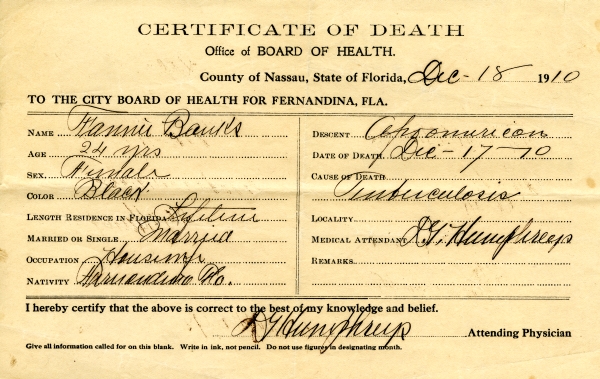 CERTIFICATE OF DEATH
Office of BOARD OF HEALTH.
County of Nassau, State of Florida, Dec - 18 1910
TO THE CITY BOARD OF HEALTH FOR FERNANDINA, FLA.
NAME Fannie Banks
AGE 24 yrs
SEX. Female
COLOR Black
LENGTH RESIDENCE IN FLORIDA Lifetime
MARRIED OR SINGLE Married
OCCUPATION Housewife
NATIVITY Fernandina Fla.
DESCENT Afroamerican
DATE OF DEATH Dec - 17 - 10
CAUSE OF DEATH
Tuberculosis
LOCALITY
MEDICAL ATTENDANT Humphreys
REMARKS
I hereby certify that the above is correct to the best of my knowledge and belief.
Humphreys Attending Physician
Give all information called for on this blank. Write in ink, not pencil. Do not use figures in designating month.